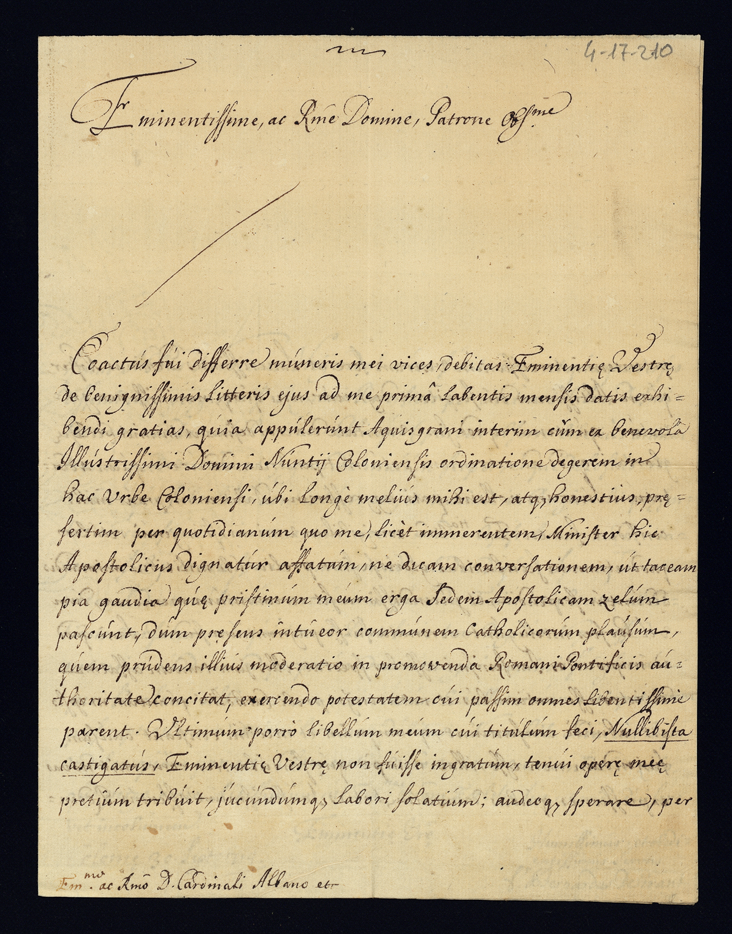 4-17-210
Eminentissime, ac Rme Domine, Patrone Obsme
Coactus fui differre muneris mei vices, debitas Eminentię Vestrę
de benignissimis litteris ejus ad me primâ labentis mensis datis exhi=
bendi gratias, quia appulerunt Aquisgrani interim cùm ex benevola
Illustrissimi Domini Nuntij Coloniensis ordinatione degerem in
hac Urbe Coloniensi, ubi longè melius mihi est, atq, honestius, prę=
sertim per quotidianum quo me, licèt immerentem, Minister hic
Apostolicus dignatur affatum, ne dicam conversationem, ut taceam
pia gaudia quę pristinum meum erga Sedem Apostolicam zelum
pascunt, dum presens intueor communem Catholicorum plausum,
quem prudens illius moderatio in promovenda Romani Pontificis au=
thoritate concitat, exercendo potestatem cui passim omnes libentissime
parent. Ultimum porro libellum meum cui titulum feci, Nullibista
castigatus, Eminentię Vestrę non fuisse ingratum, tenui operę meę
pretium tribuit, jucundumq, labori solatium; audeoq, sperare, per
Emmo. ac Rmo D. Cardinali Albano etc